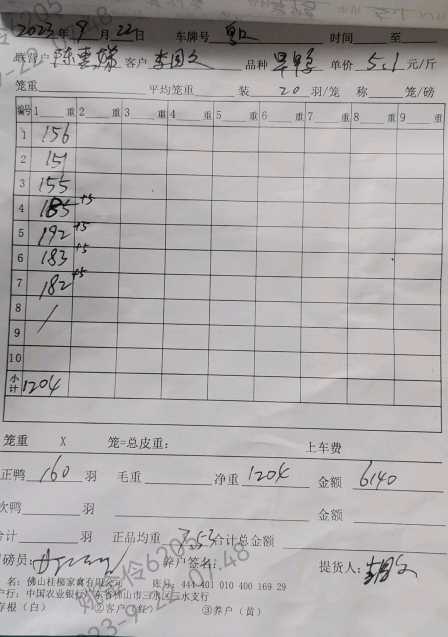 2023年9月22日 车牌号 自 时间 至
联营户 陈惠嫦 客户 李国文 品种 单价 5.1 元/斤
笼重 平均笼重 装 20 羽/笼 称 笼/磅
编号 1 重 2 重 3 重 4 重 5 重 6 重 7 重 8 重 9 重
1 156
2 151
3 155
4 185 +5
5 192 +5
6 183 +5
7 182 +5
8
9
10
小计 1204
笼重 X 笼=总皮重: 上车费
正鸭 160 羽 毛重 净重 1204 金额 6140
次鸭 羽 金额
合计 羽 正品均重 7.53 合计总金额
司磅员: 养户签名: 提货人: 李国文
名: 佛山桂柳家禽有限公司 账号: 444 401 010 400 169 29
户行: 中国农业银行广东省佛山市三水区三水支行
存根（白） ②客户（红） ③养户（黄）